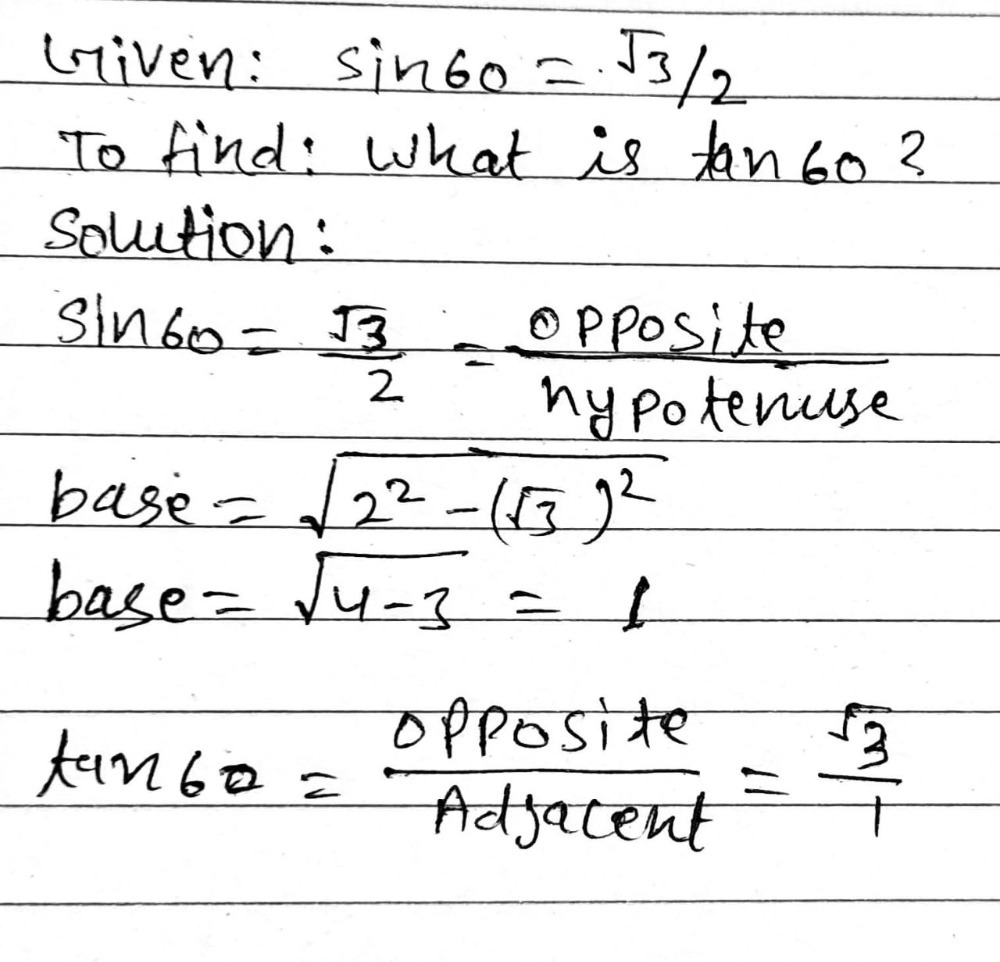 Given: sin60 = √3/2
To find: What is tan60?
Solution:
Sin60 = √3/2 = opposite/hypotenuse
base = √(2² - (√3)²)
base = √(4-3) = 1
tan60 = opposite/Adjacent = √3/1